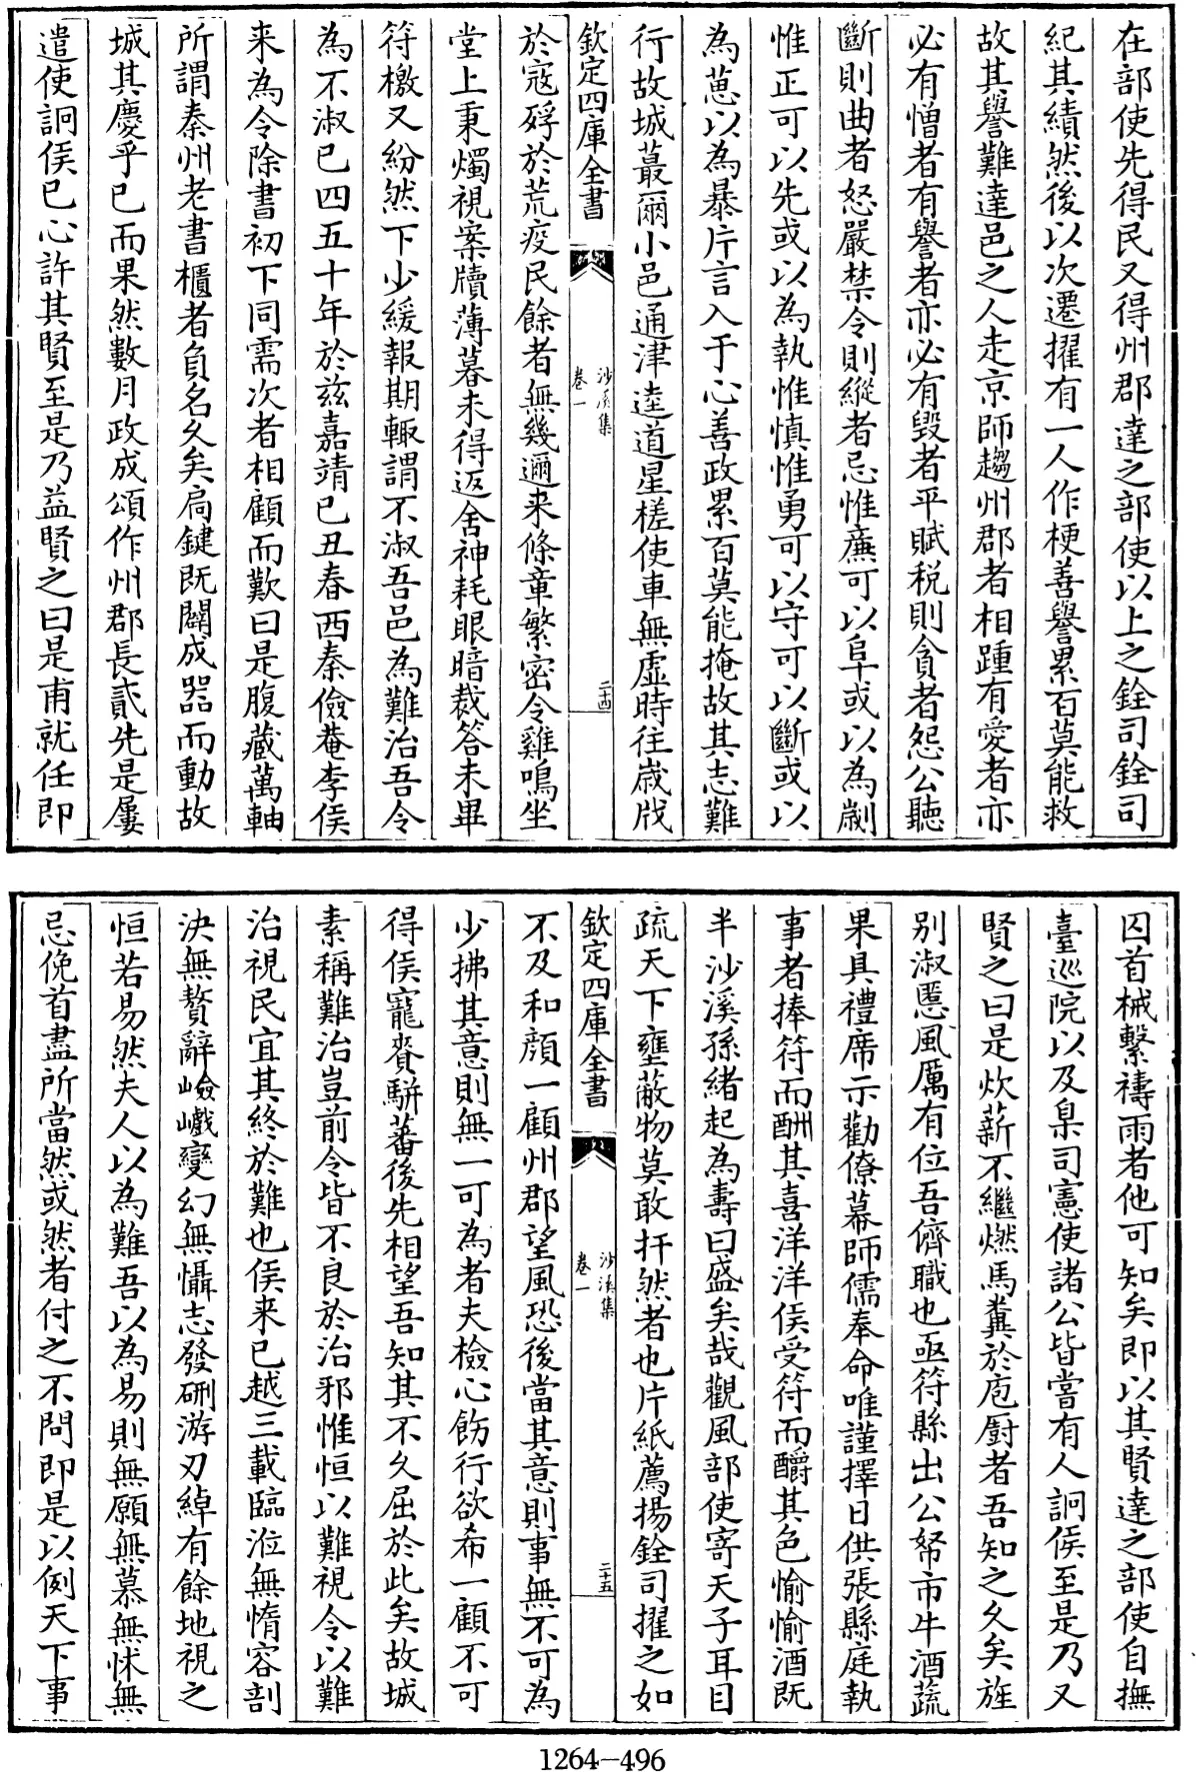 在部使先得民又得州郡達之部使以上之銓司銓司
紀其績然後以次遷擢有一人作梗善譽累百莫能救
故其譽難達邑之人走京師趨州郡者相踵有愛者亦
必有憎者有譽者亦必有毀者平賦税則貪者怨公聽
斷則曲者怒嚴禁令則縱者忌惟亷可以阜或以為劌
惟正可以先或以為執惟慎惟勇可以守可以斷或以
為葸以為暴片言入于心善政累百莫能掩故其志難
行故城蕞爾小邑通津逵道星槎使車無虚時往嵗戕
欽定四庫全書
沙溪集
卷一
二十四
於寇殍於荒疫民餘者無幾邇来條章繁密令雞鳴坐
堂上秉燭視案牘薄暮未得返舍神耗眼暗裁答未畢
符檄又紛然下少緩報期輙謂不淑吾邑為難治吾令
為不淑已四五十年於兹嘉靖已丑春西秦儉菴李侯
来為令除書初下同需次者相顧而歎曰是腹藏萬軸
所謂秦州老書櫃者負名久矣扃鍵既闢成器而動故
城其慶乎已而果然數月政成頌作州郡長貳先是屢
遣使詗侯已心許其賢至是乃益賢之曰是甫就任即
囚首械繫禱雨者他可知矣即以其賢達之部使自撫
臺巡院以及臬司憲使諸公皆嘗有人詗侯至是乃又
賢之曰是炊薪不繼燃馬糞於庖厨者吾知之久矣旌
别淑慝風厲有位吾儕職也亟符縣出公帑市牛酒蔬
果具禮席示勸僚幕師儒奉命唯謹擇日供張縣庭執
事者捧符而酬其喜洋洋侯受符而釂其色愉愉酒既
半沙溪孫緒起為壽曰盛矣哉觀風部使寄天子耳目
疏天下壅蔽物莫敢扞然者也片紙薦揚銓司擢之如
欽定四庫全書
沙溪集
卷一
二十五
不及和顔一顧州郡望風恐後當其意則事無不可為
少拂其意則無一可為者夫檢心飭行欲希一顧不可
得侯寵賚駢蕃後先相望吾知其不久屈於此矣故城
素稱難治豈前令皆不良於治邪惟恒以難視令以難
治視民宜其終於難也侯来已越三載臨涖無惰容剖
決無贅辭嶮巇變幻無懾志發硎游刃綽有餘地視之
恒若易然夫人以為難吾以為易則無願無慕無怵無
忌俛首盡所當然或然者付之不問即是以例天下事
1264-496